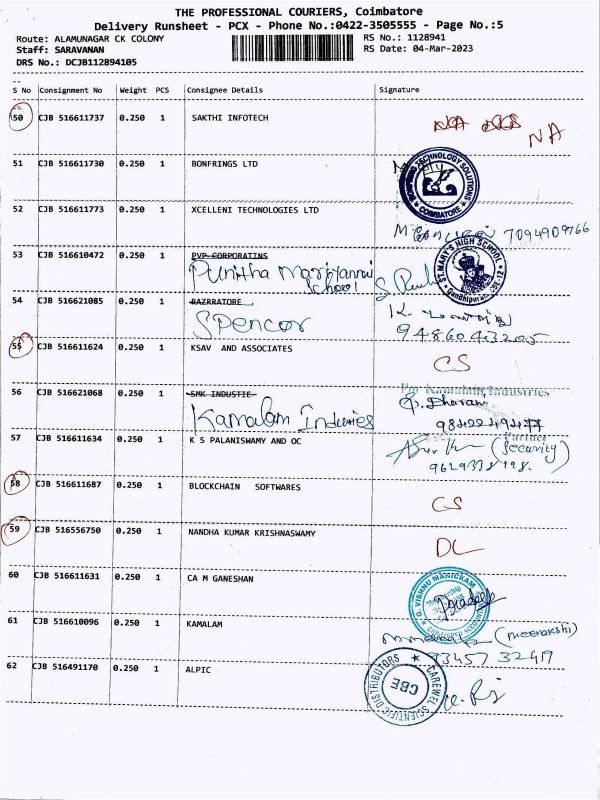 THE PROFESSIONAL COURIERS, Coimbatore
Delivery Runsheet - PCX - Phone No.:0422-3505555 - Page No.:5
Route: ALAMUNAGAR CK COLONY RS No.: 1128941
Staff: SARAVANAN RS Date: 04-Mar-2023
DRS No.: DCJB112894105
S No Consignment No Weight PCS Consignee Details Signature
50 CJB 516611737 0.250 1 SAKTHI INFOTECH NA
51 CJB 516611730 0.250 1 BONFRINGS LTD TECHNOLOGY SOLUTIONS COIMBATORE
52 CJB 516611773 0.250 1 XCELLENI TECHNOLOGIES LTD 7094909766
53 CJB 516610472 0.250 1 PVP CORPORATINS ST.MARY'S HIGH SCHOOL Gandhipuram, CBE-12
Punitha Mariyannai School
54 CJB 516621085 0.250 1 RAZRRATORE
Spencor
55 CJB 516611624 0.250 1 KSAV AND ASSOCIATES CS
56 CJB 516621068 0.250 1 SMK INDUSTIE For Kamalam Industries
Kamalam Indusries 9842249477 Partner
57 CJB 516611634 0.250 1 K S PALANISWAMY AND OC (Security)
58 CJB 516611687 0.250 1 BLOCKCHAIN SOFTWARES CS
59 CJB 516556750 0.250 1 NANDHA KUMAR KRISHNASWAMY DL
60 CJB 516611631 0.250 1 CA M GANESHAN G. VISHNU MANICKAM
61 CJB 516610096 0.250 1 KAMALAM (meenakshi)
62 CJB 516491170 0.250 1 ALPIC CAREWEL SCIENTIFIC DISTRIBUTORS CBE